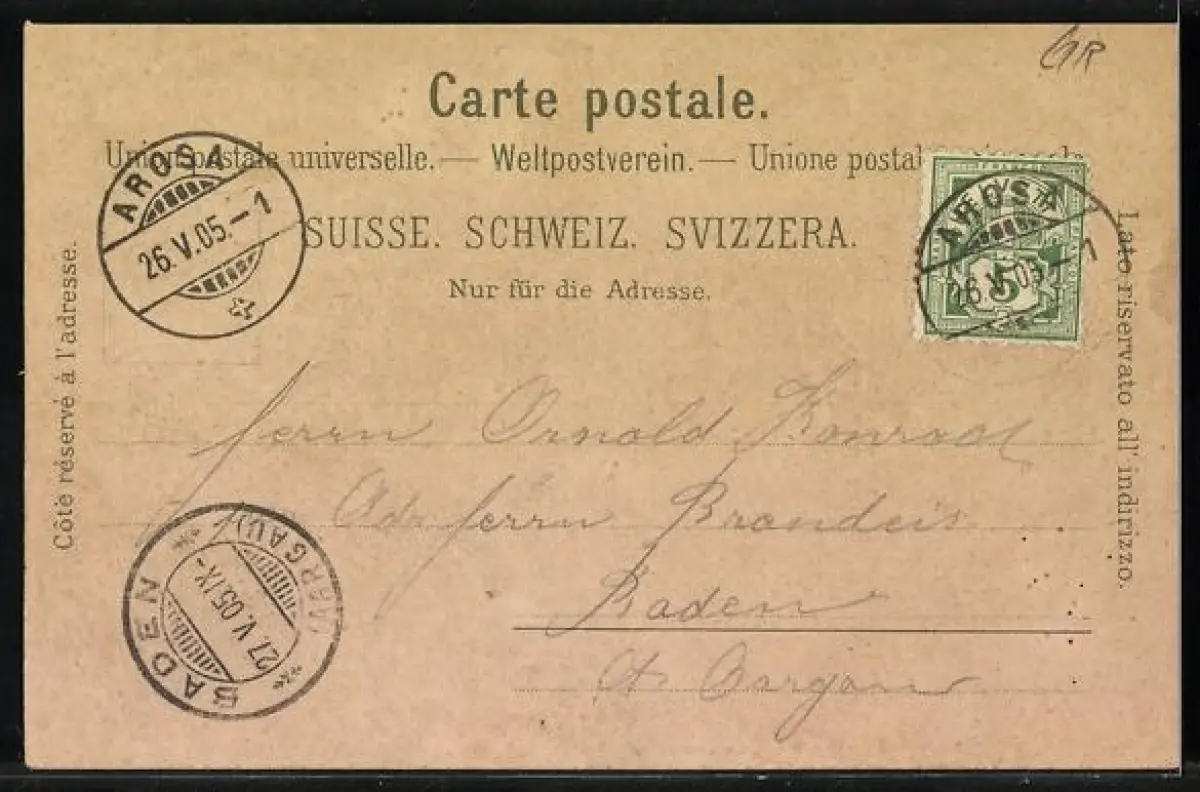 GR
Carte postale.
Union postale universelle. — Weltpostverein. — Unione postale
SUISSE. SCHWEIZ. SVIZZERA.
Nur für die Adresse.
Côté réservé à l'adresse.
Lato riservato all' indirizzo.
AROSA
26.V.05.–1
AROSA
26.V.05.–1
5
Herrn Arnold Konrad
Adr Herrn Brandeis
Baden
Ct. Aargau
BADEN
(AARGAU)
27.V.05.IX–